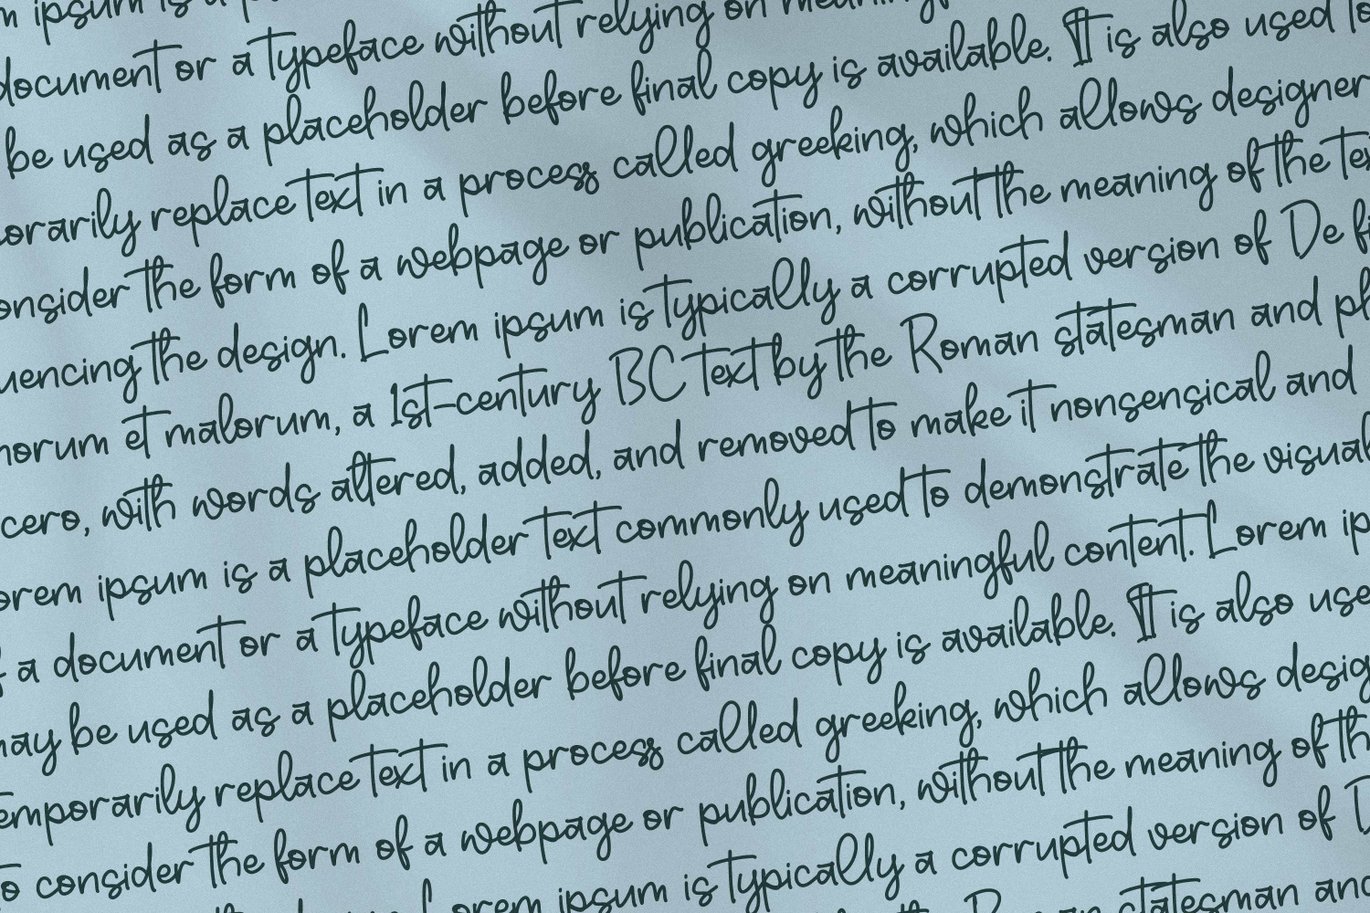 m ipsum is a
document or a typeface without relying on meaningf
be used as a placeholder before final copy is available. It is also used to
orarily replace text in a process called greeking, which allows designer
onsider the form of a webpage or publication, without the meaning of the te
uencing the design. Lorem ipsum is typically a corrupted version of De fi
norum et malorum, a 1st-century BC text by the Roman statesman and ph
cero, with words altered, added, and removed to make it nonsensical and
orem ipsum is a placeholder text commonly used to demonstrate the visual
f a document or a typeface without relying on meaningful content. Lorem ip
may be used as a placeholder before final copy is available. It is also use
emporarily replace text in a process called greeking, which allows desig
o consider the form of a webpage or publication, without the meaning of th
Lorem ipsum is typically a corrupted version of D
statesman and